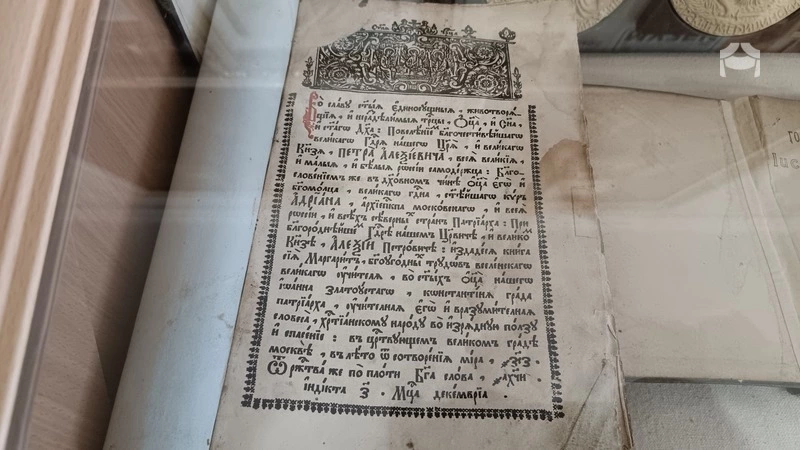 Во славу ст҃ыѧ є҆диносꙋщныѧ, животворѧ-
щїѧ, и҆ нераздѣлимыѧ трⷪ҇цы, Ѻ҆ц҃а, и҆ сн҃а,
и҆ ст҃агѡ дх҃а: Повелѣнїемъ благочестивѣйшагѡ
великагѡ гдⷭ҇рѧ нашегѡ цр҃ѧ, и҆ великагѡ
кнѧзѧ, ПЕТРА АЛЕѮЇЕВИЧА, всеѧ великїѧ,
и҆ малыѧ, и҆ бѣлыѧ рѡссїи самодержца: Бл҃го-
словенїемъ же въ дх҃овномъ чинѣ ѻ҆ц҃а є҆гѡ̀ и҆
бг҃омолца, великагѡ гдⷭ҇на, ст҃ѣйшагѡ кѵръ
АДРЇАНА, а҆рхїепⷭ҇кпа московскагѡ, и҆ всеѧ
рѡссїи, и҆ всѣхъ сѣверныхъ странъ Патрїарха: При
благороднѣйшемъ гдⷭ҇рѣ нашемъ цр҃вичѣ, и҆ великомъ
кнѧзѣ, АЛЕѮЇИ Петровичѣ: и҆здадесѧ книга
сїѧ Маргаритъ, бг҃оꙋгодныхъ трꙋдѡвъ вселенскагѡ
великагѡ ᲂу҆чителѧ, во ст҃ыхъ ѻ҆ц҃а нашегѡ
і҆ѡанна златоꙋстагѡ, кѡнстантїнѧ града
патрїарха, ᲂу҆чителнаѧ є҆гѡ̀ и҆ вразꙋмителнаѧ
словеса, хрⷭ҇тїанскомꙋ народꙋ во и҆зрѧднꙋю ползꙋ
и҆ спасенїе: въ црⷭ҇твꙋющемъ великомъ градѣ
москвѣ, въ лѣто ѿ сотворенїѧ мїра, ҂зс҃з.
Ѿ ржⷭ҇тва же по плоти бг҃а слова, ҂ах҃чи.
і҆ндїкта з҃. мцⷭ҇а декемврїа.